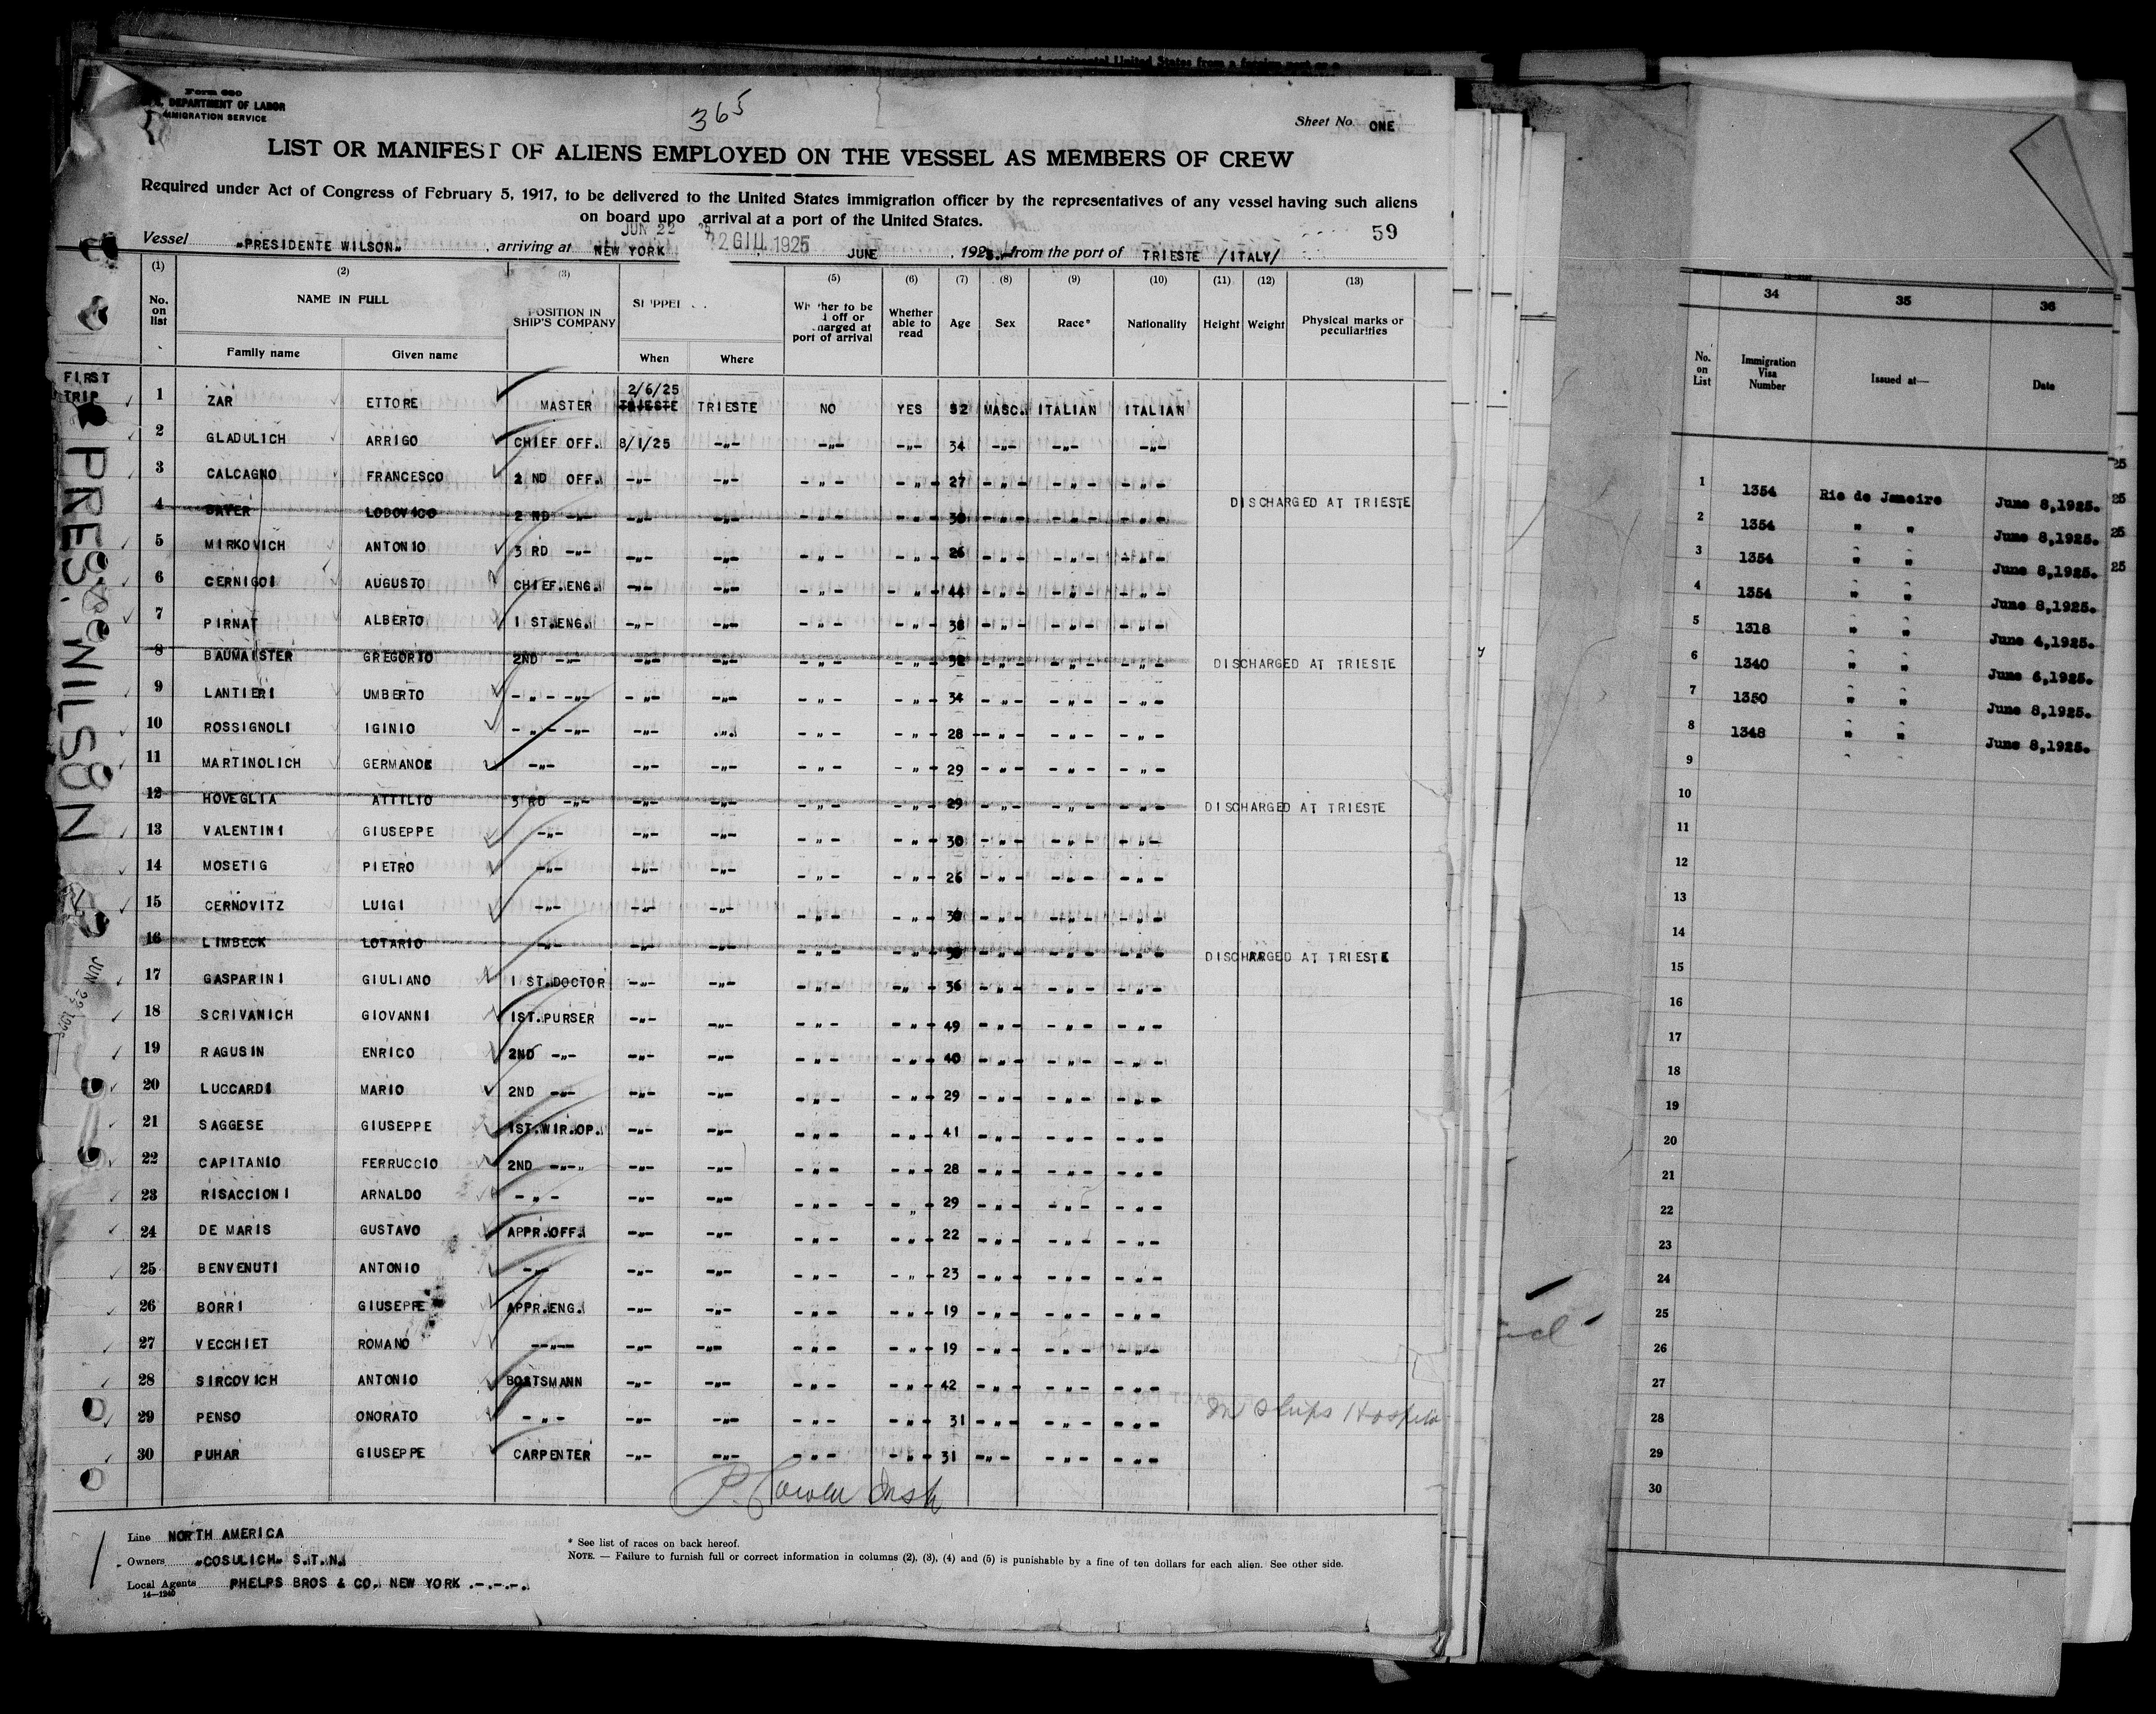 Form 680
DEPARTMENT OF LABOR
IMMIGRATION SERVICE
365
Sheet No. ONE
LIST OR MANIFEST OF ALIENS EMPLOYED ON THE VESSEL AS MEMBERS OF CREW
Required under Act of Congress of February 5, 1917, to be delivered to the United States immigration officer by the representatives of any vessel having such aliens
on board upo arrival at a port of the United States.
JUN 22
22 GIU. 1925
59
Vessel „PRESIDENTE WILSON„ , arriving at NEW YORK JUNE , 1925.– from the port of TRIESTE /ITALY/
(1) (2) (3) (5) (6) (7) (8) (9) (10) (11) (12) (13)
No. on list NAME IN FULL POSITION IN SHIP'S COMPANY SHIPPE Whether to be off or harged at port of arrival Whether able to read Age Sex Race* Nationality Height Weight Physical marks or peculiarities
Family name Given name When Where
FIRST TRIP
PRES. WILSON
JUN 22 1925
1 ZAR ETTORE MASTER 2/6/25 TRIESTE TRIESTE NO YES 52 MASC. ITALIAN ITALIAN
2 GLADULICH ARRIGO CHIEF OFF. 8/1/25 -„- -„- -„- 34 -„- -„- -„-
3 CALCAGNO FRANCESCO 2 ND OFF. -„- -„- -„- -„- 27 -„- -„- -„-
4 LODOVICO 2 ND -„- -„- -„- -„- -„- 30 -„- -„- -„- DISCHARGED AT TRIESTE
5 MIRKOVICH ANTONIO 3 RD -„- -„- -„- -„- -„- 26 -„- -„- -„-
6 CERNIGOI AUGUSTO CHIEF.ENG. -„- -„- -„- -„- 44 -„- -„- -„-
7 PIRNAT ALBERTO 1 ST.ENG. -„- -„- -„- -„- 38 -„- -„- -„-
8 BAUMAISTER GREGORIO 2ND -„- -„- -„- -„- -„- 32 -„- -„- -„- DISCHARGED AT TRIESTE
9 LANTIERI UMBERTO -„- -„- -„- -„- -„- -„- 34 -„- -„- -„-
10 ROSSIGNOLI IGINIO -„- -„- -„- -„- -„- -„- 28 -„- -„- -„-
11 MARTINOLICH GERMANOE -„- -„- -„- -„- -„- 29 -„- -„- -„-
12 HOVEGLIA ATTILIO 3 RD -„- -„- -„- -„- -„- 29 -„- -„- -„- DISCHARGED AT TRIESTE
13 VALENTINI GIUSEPPE -„- -„- -„- -„- -„- 30 -„- -„- -„-
14 MOSETIG PIETRO -„- -„- -„- -„- -„- 26 -„- -„- -„-
15 CERNOVITZ LUIGI -„- -„- -„- -„- -„- 30 -„- -„- -„-
16 LIMBECK LOTARIO -„- -„- -„- -„- -„- -„- -„- -„- DISCHARGED AT TRIESTE
17 GASPARINI GIULIANO 1 ST.DOCTOR -„- -„- -„- -„- 36 -„- -„- -„-
18 SCRIVANICH GIOVANNI 1ST.PURSER -„- -„- -„- -„- 49 -„- -„- -„-
19 RAGUSIN ENRICO 2ND -„- -„- -„- -„- -„- 40 -„- -„- -„-
20 LUCCARDI MARIO 2ND -„- -„- -„- -„- -„- 29 -„- -„- -„-
21 SAGGESE GIUSEPPE 1ST.WIR.OP. -„- -„- -„- -„- 41 -„- -„- -„-
22 CAPITANIO FERRUCCIO 2ND -„-„ -„- -„- -„- -„- 28 -„- -„- -„-
23 RISACCIONI ARNALDO -„- -„- -„- -„- -„- 29 -„- -„- -„-
24 DE MARIS GUSTAVO APPR.OFF. -„- -„- -„- -„- 22 -„- -„- -„-
25 BENVENUTI ANTONIO -„- -„- -„- -„- -„- 23 -„- -„- -„-
26 BORRI GIUSEPPE APPR.ENG. -„- -„- -„- -„- 19 -„- -„- -„-
27 VECCHIET ROMANO --„-- -„- -„- -„- -„- 19 -„- -„- -„-
28 SIRCOVICH ANTONIO BOATSMANN -„- -„- -„- -„- 42 -„- -„- -„-
29 PENSO ONORATO -„- -„- -„- -„- -„- 31 -„- -„- -„- In Ships Hospital
30 PUHAR GIUSEPPE CARPENTER -„- -„- -„- -„- 31 -„- -„- -„-
Line NORTH AMERICA
Owners „COSULICH„ S.T.N.
Local Agents PHELPS BROS & CO. NEW YORK .-.-.-.
14—1240
* See list of races on back hereof.
NOTE. — Failure to furnish full or correct information in columns (2), (3), (4) and (5) is punishable by a fine of ten dollars for each alien. See other side.
34 35 36
No. on List Immigration Visa Number Issued at— Date
1 1354 Rio de Janeiro June 8,1925.
2 1354 " " June 8,1925.
3 1354 " " June 8,1925.
4 1354 " " June 8,1925.
5 1318 " " June 4,1925.
6 1340 " " June 6,1925.
7 1350 " " June 8,1925.
8 1348 " " June 8,1925.
9
10
11
12
13
14
15
16
17
18
19
20
21
22
23
24
25
26
27
28
29
30
25
25
25
25